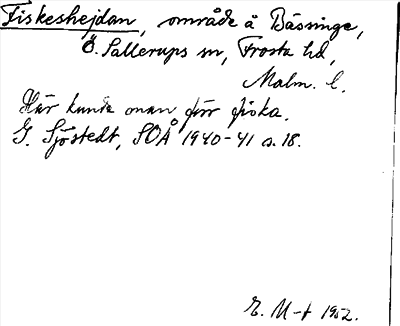 Fiskeshejdan, område å Bässinge,
Ö. Sallerups sn, Frosta hd,
Malm. l.
Här kunde man förr fiska.
G. Sjöstedt, SOÅ 1940-41 s. 18.
E. M-t 1952.